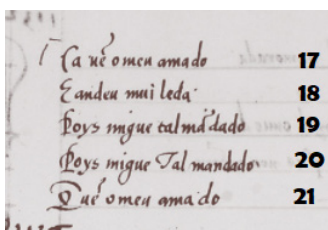 Ca uẽ o meu amado 17
E andeu mui leda 18
Poys migue tal mãdado 19
Poys migue Tal mandado 20
Que o meu amado 21